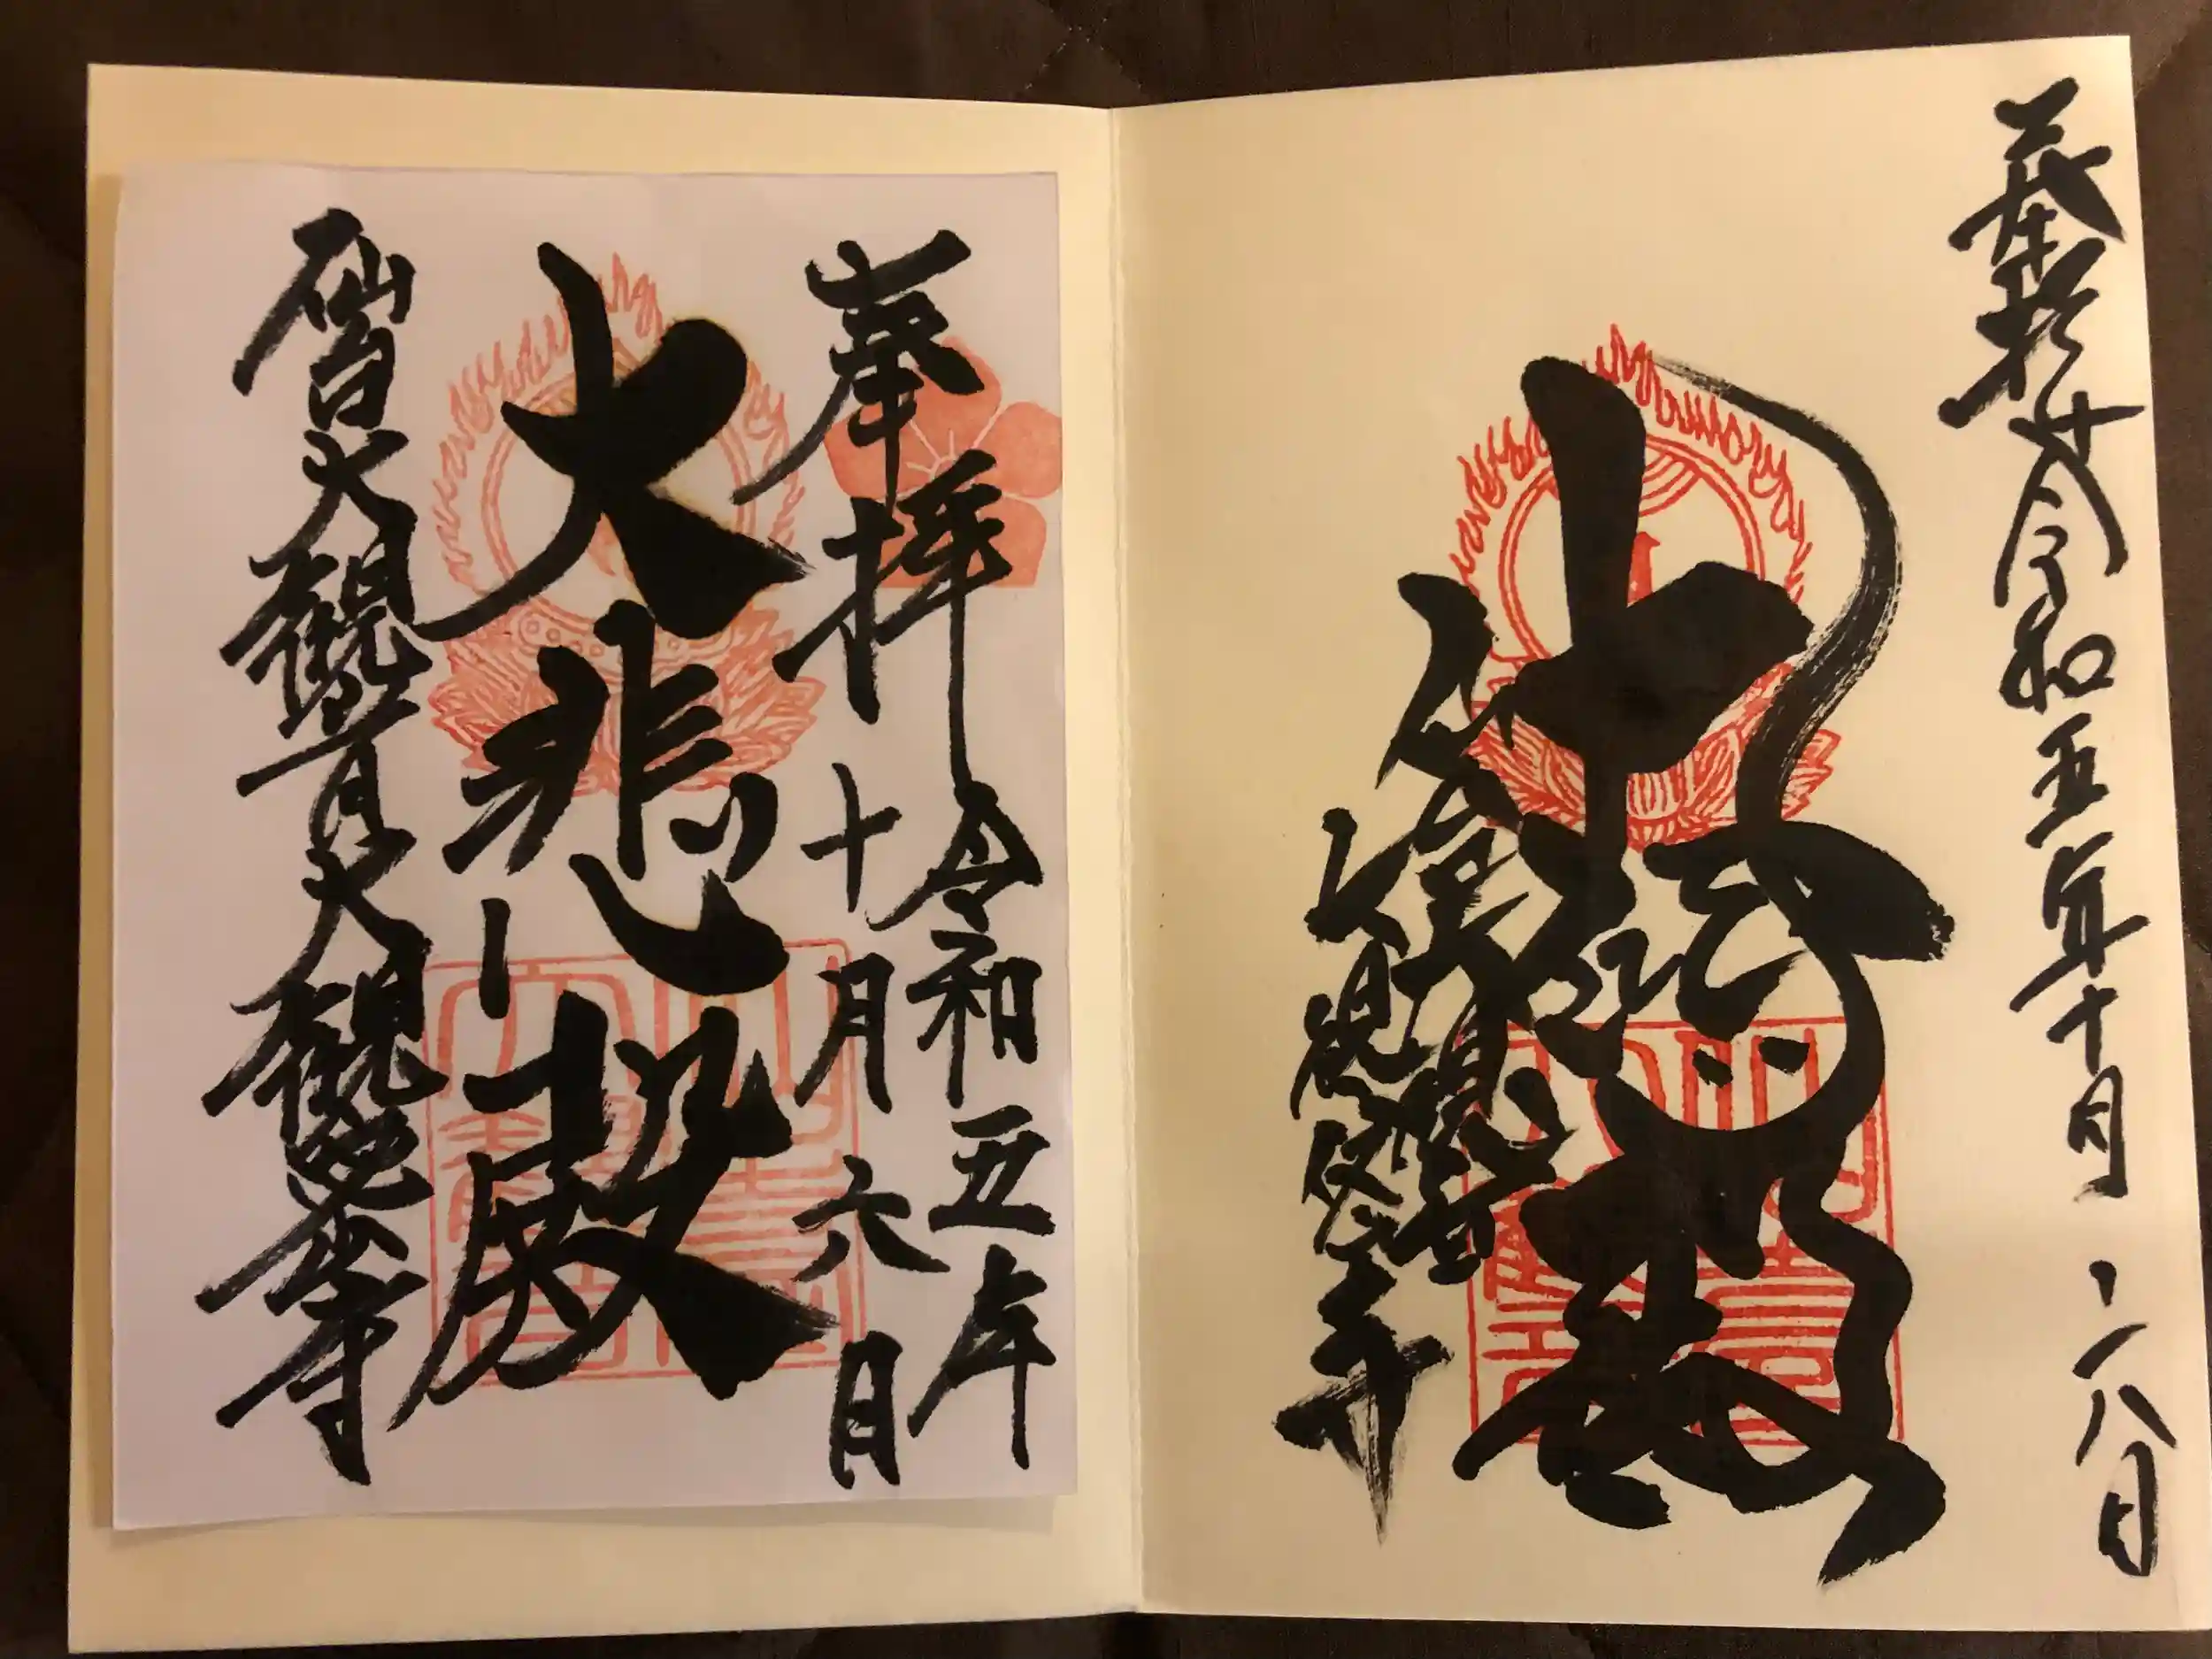 奉拝 令和五年十月二八日
大悲殿
仙台大観音
大観密寺
奉拝
令和五年
十月六日
大悲殿
仙台大観音大観密寺